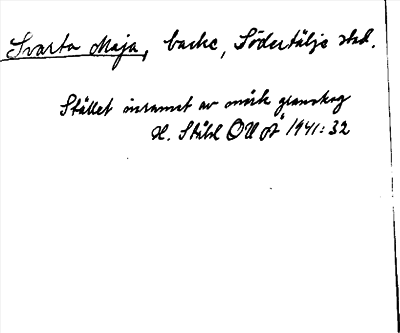 Svarta Maja, backe, Södertälje stad.
Stället inramat av mörk granskog
H. Ståhl OUÅ 1941:32